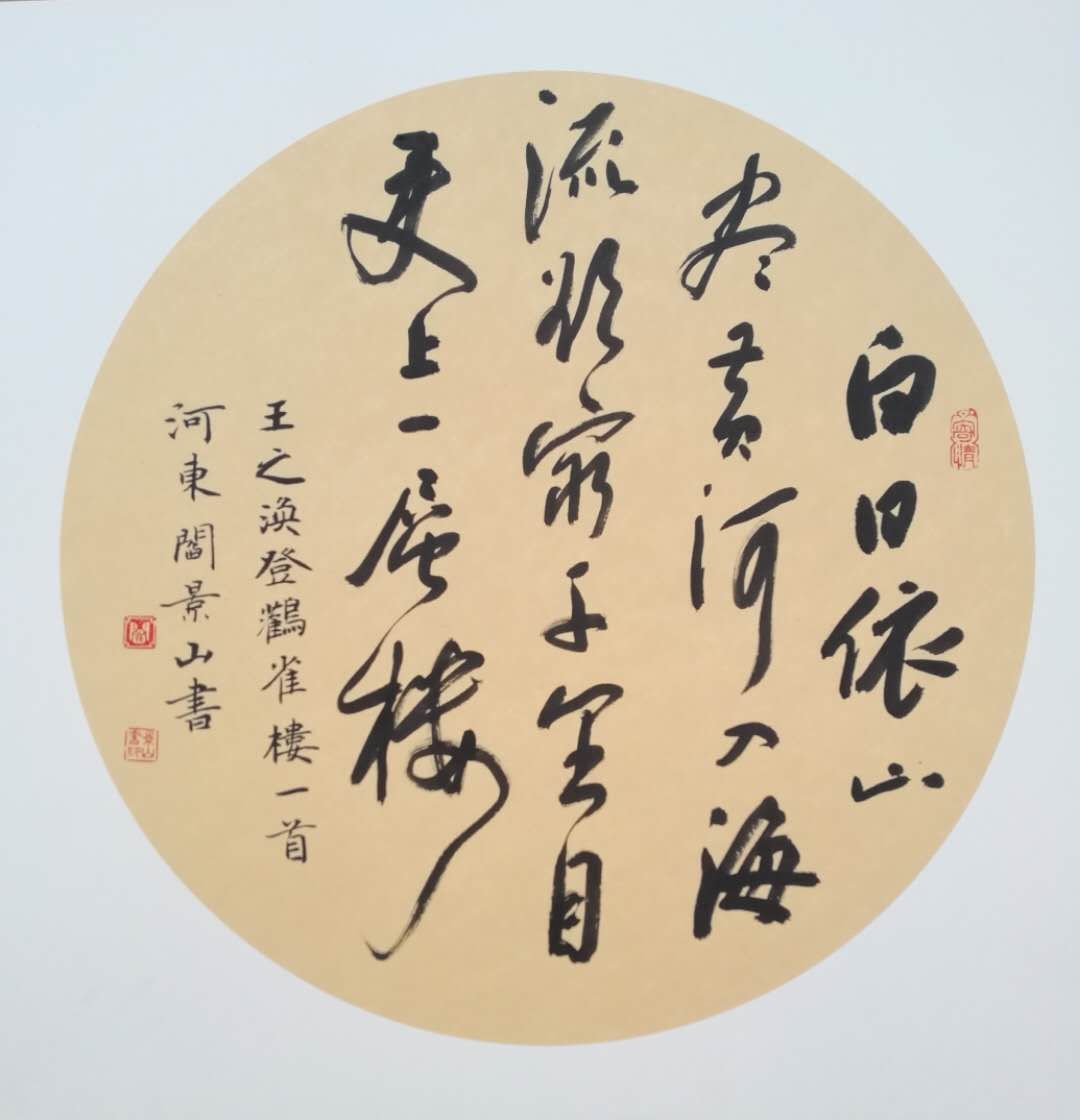 白日依山
尽黄河入海
流欲穷千里目
更上一层楼
王之渙登鸛雀樓一首
河東閻景山書